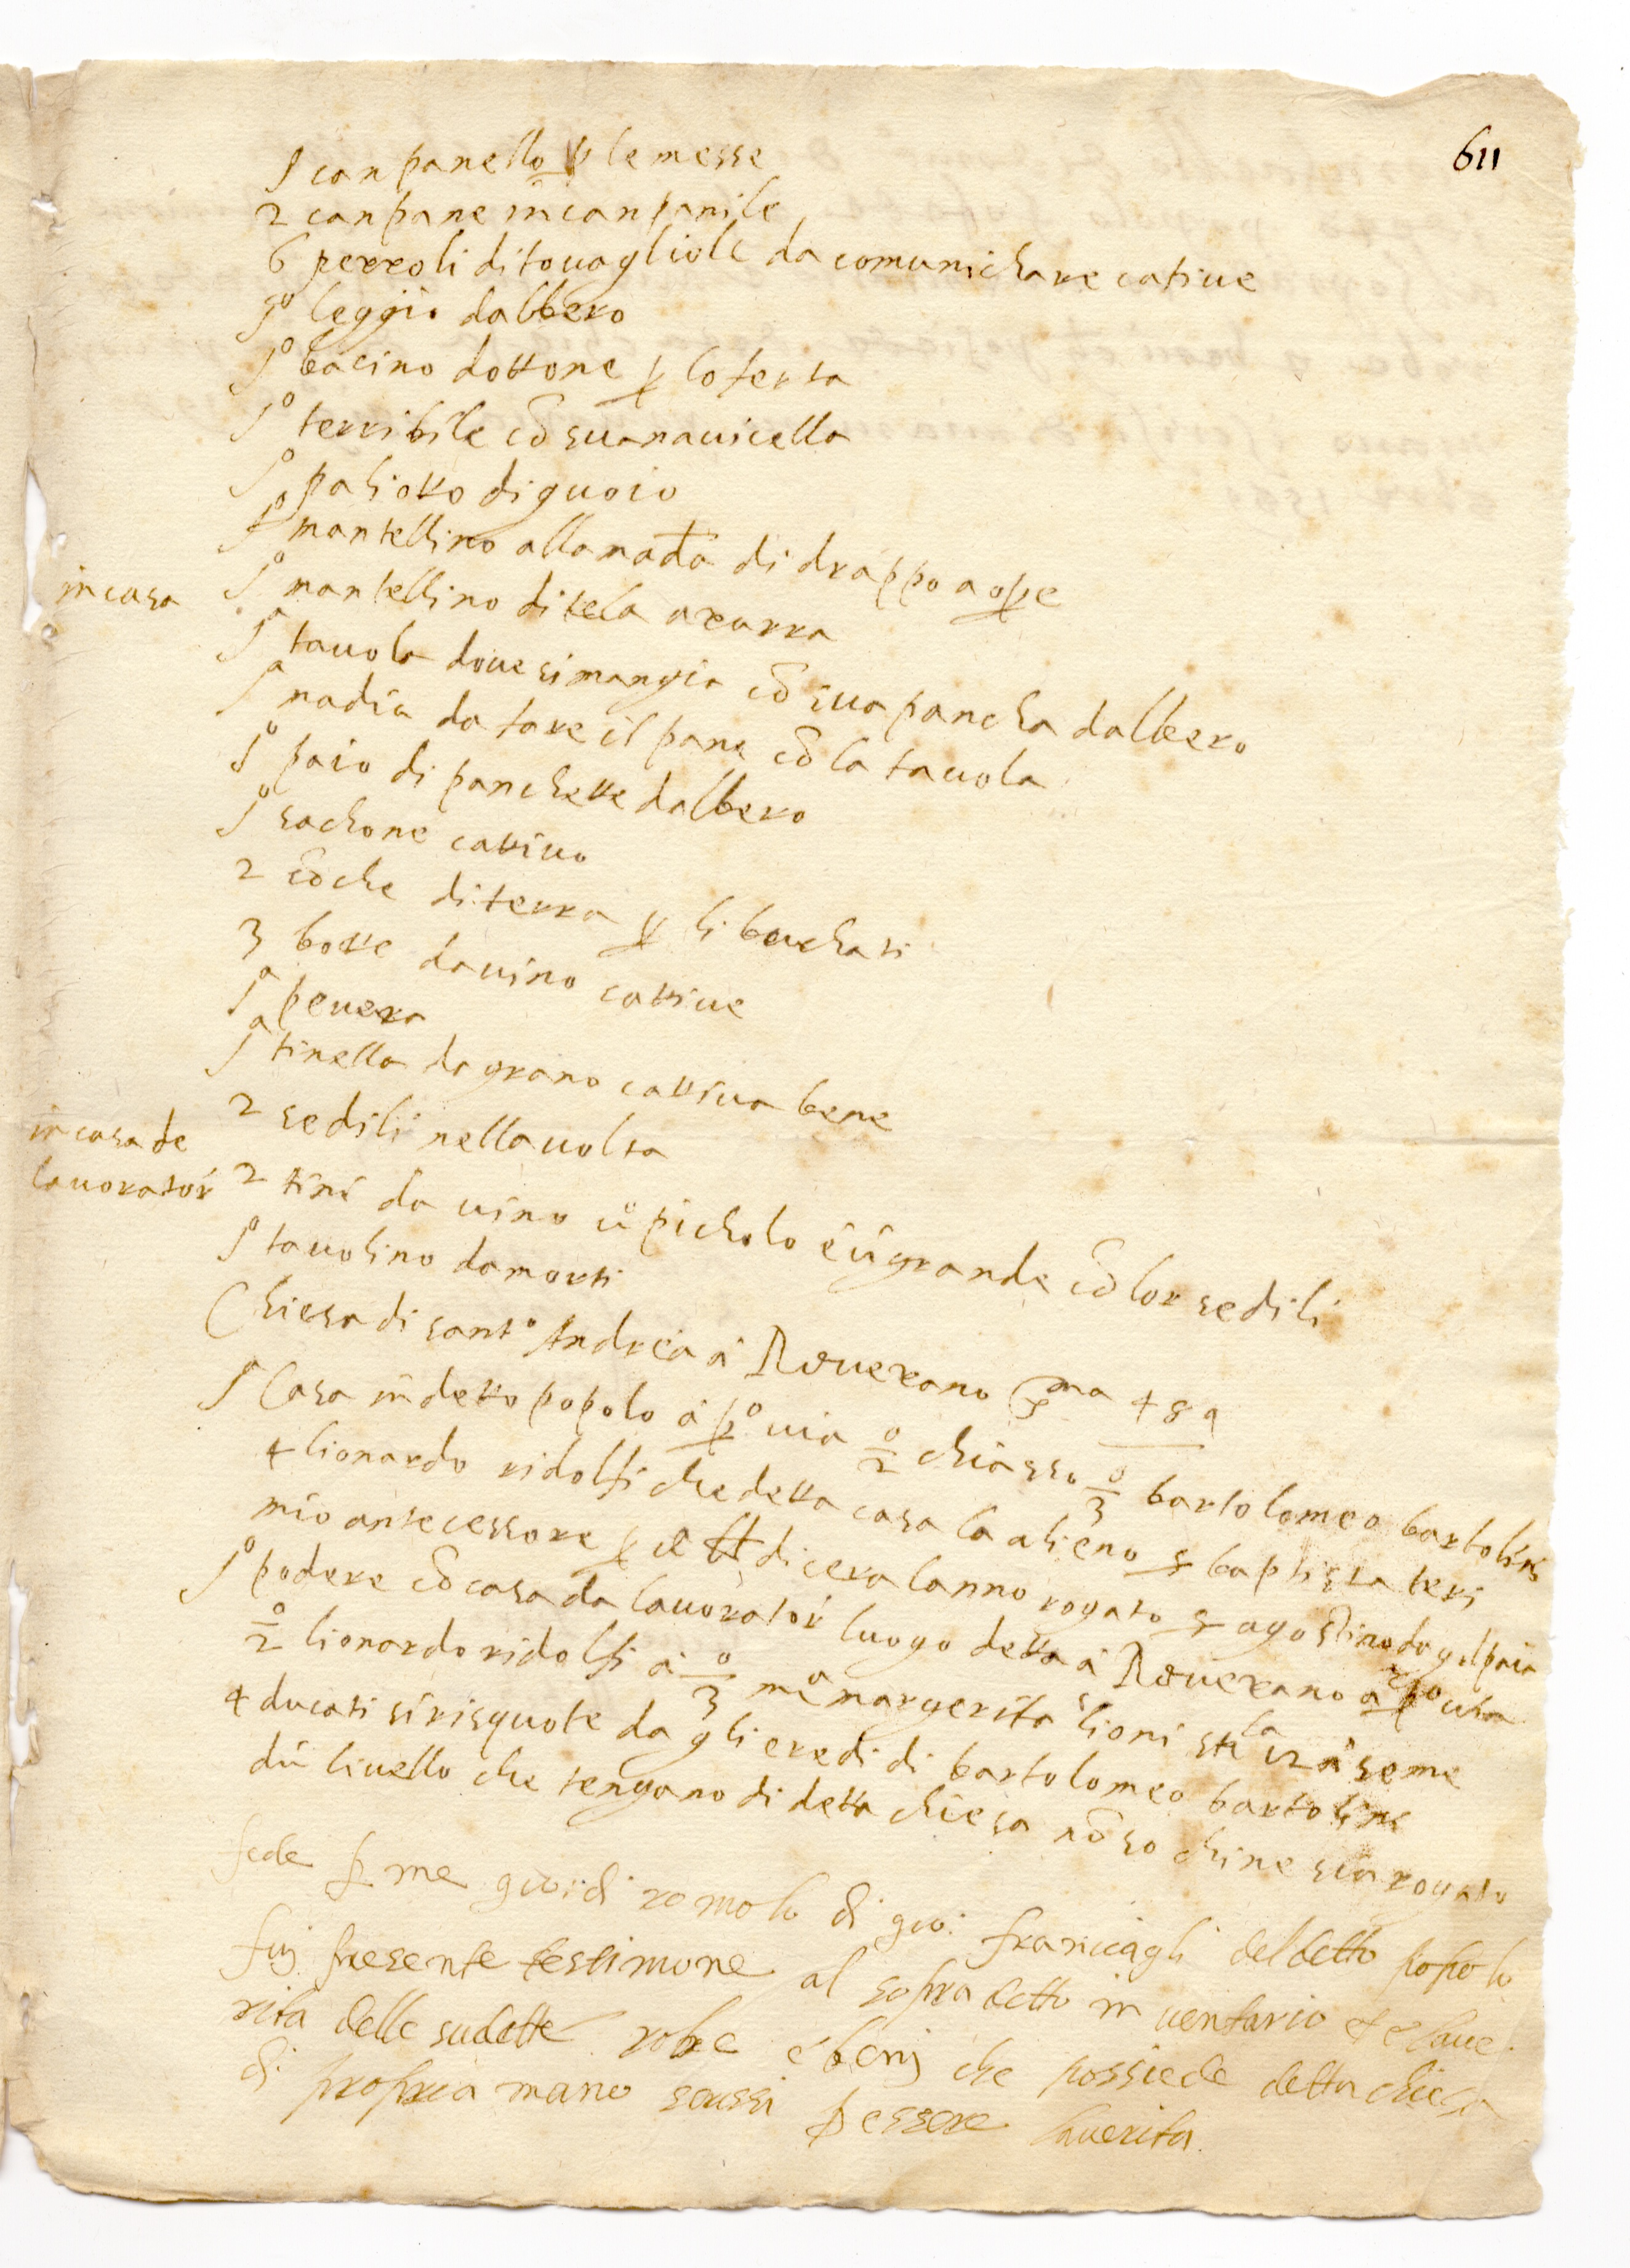 611
1 canpanello p le messe
2 canpane in canpanile
6 pezzoli di tovagliole da comunichare cative
1o leggio dalbero
1o bacino dottone p loferta
1o terribile cō sua navicella
1o paliotto di quoio
1o mantellino alla madā di drappo a ope
1o mantellino di tela azurra
in casa
1a tavola dove si mangia cō sua pancha dalbero
1a madia da fare il pane cō la tavola
1o paio di panchette dalbero
1o sachone cattivo
2 cōche di terra p li bouchati
3 botte da vino cattive
1a pevera
1a tinella da grano cattiva bene
2 sedili nella volta
in casa de
lavorator
2 tini da vino ū picholo e ū grande cō lor sedili
1o tavolino da morti
Chiesa di santo Andrea a Rovezano
1a Casa in detto popolo a po via 2o chiasso 3o bartolomeo bartolini
4 lionardo ridolfi che detta casa la alieno s baptista teri
mio antecessore p di cera lanno rogato s agostino da golpaia
1o podere cō casa da lavorator luogo detto a Rovezano a po via
2o lionardo ridolfi a 3o ma margerita lioni sta 12 a seme
4 ducati si risquote da gli eredi di bartolomeo bartolini
dū livello che tengano di detta chiesa nō so chi ne sia rogato
fede p me giovi di romolo di gio: francicagli del detto popolo
fuj presente testimone al sopradetto inventario et e lave
rita delle sudette robe e benj che possiede detta chiesa
di propria mano scrissi p essere la verita